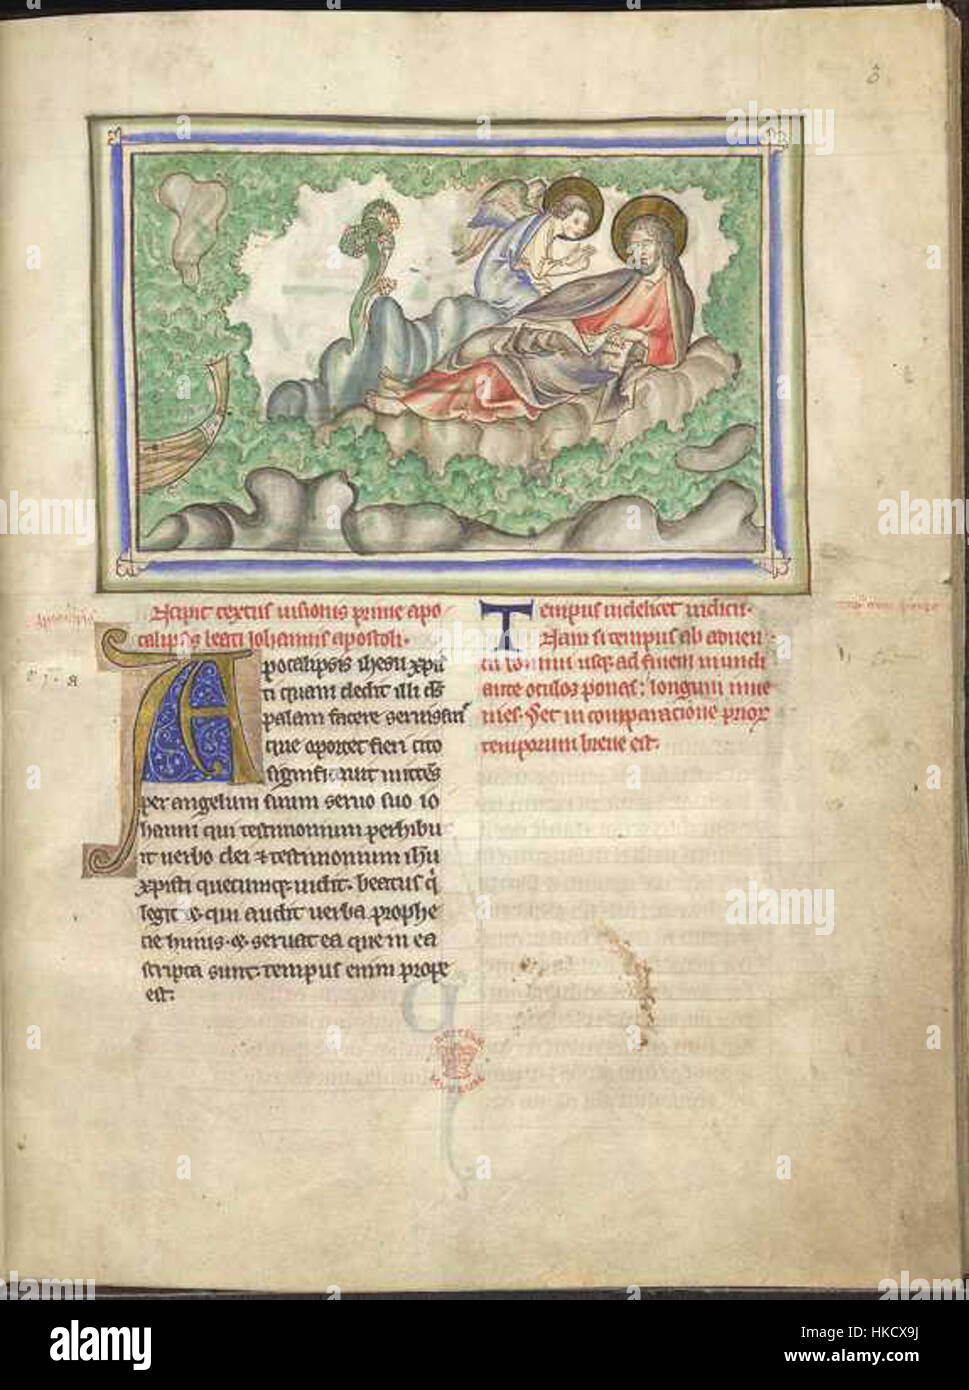 Incipit textus visionis prime apo
calipsis beati Iohannis apostoli.
Apocalipsis ihesu xpi
quam dedit illi ds
palam facere servis suis
que oportet fieri cito
significavit mittens
per angelum suum servo suo io
hanni qui testimonium perhibu
it verbo dei & testimonium ihu
xpisti quecunque vidit. beatus q
legit & qui audit verba prophe
tie huius. & servat ea que in ea
scripta sunt. tempus enim prope
est.
Tempus videlicet iudicii.
Nam si tempus ab adven
tu domini usque ad finem mundi
ante oculos ponas: longum inve
nies. Set in comparatione priorum
temporum breve est.
BRITISH
MUSEUM
alamy
HKCX9J
www.alamy.com